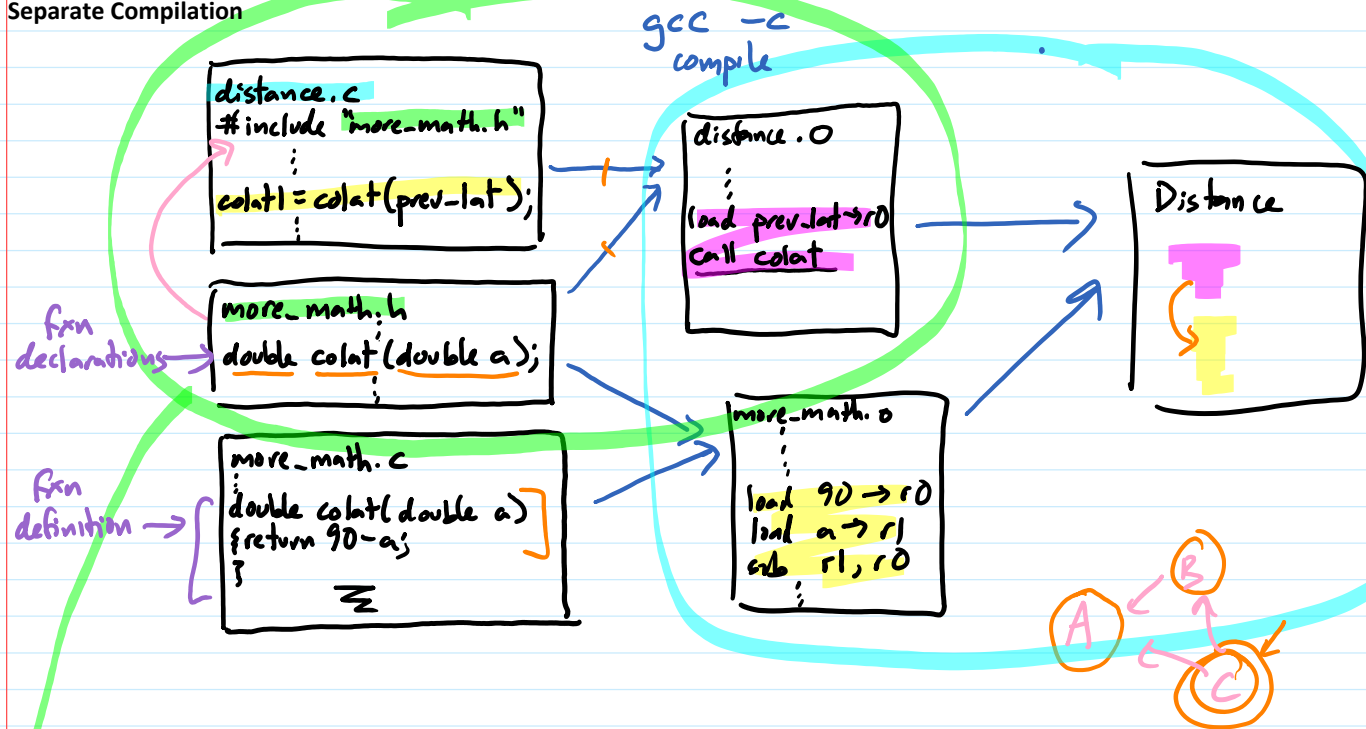 Separate Compilation
gcc -c
compile
distance.c
#include "more_math.h"
colat1 = colat(prev_lat);
more_math.h
double colat(double a);
fxn
declarations
more_math.c
double colat(double a)
{return 90-a;
}
fxn
definition
distance.o
load prev_lat→r0
call colat
more_math.o
load 90 → r0
load a → r1
sub r1, r0
Distance
A
B
C